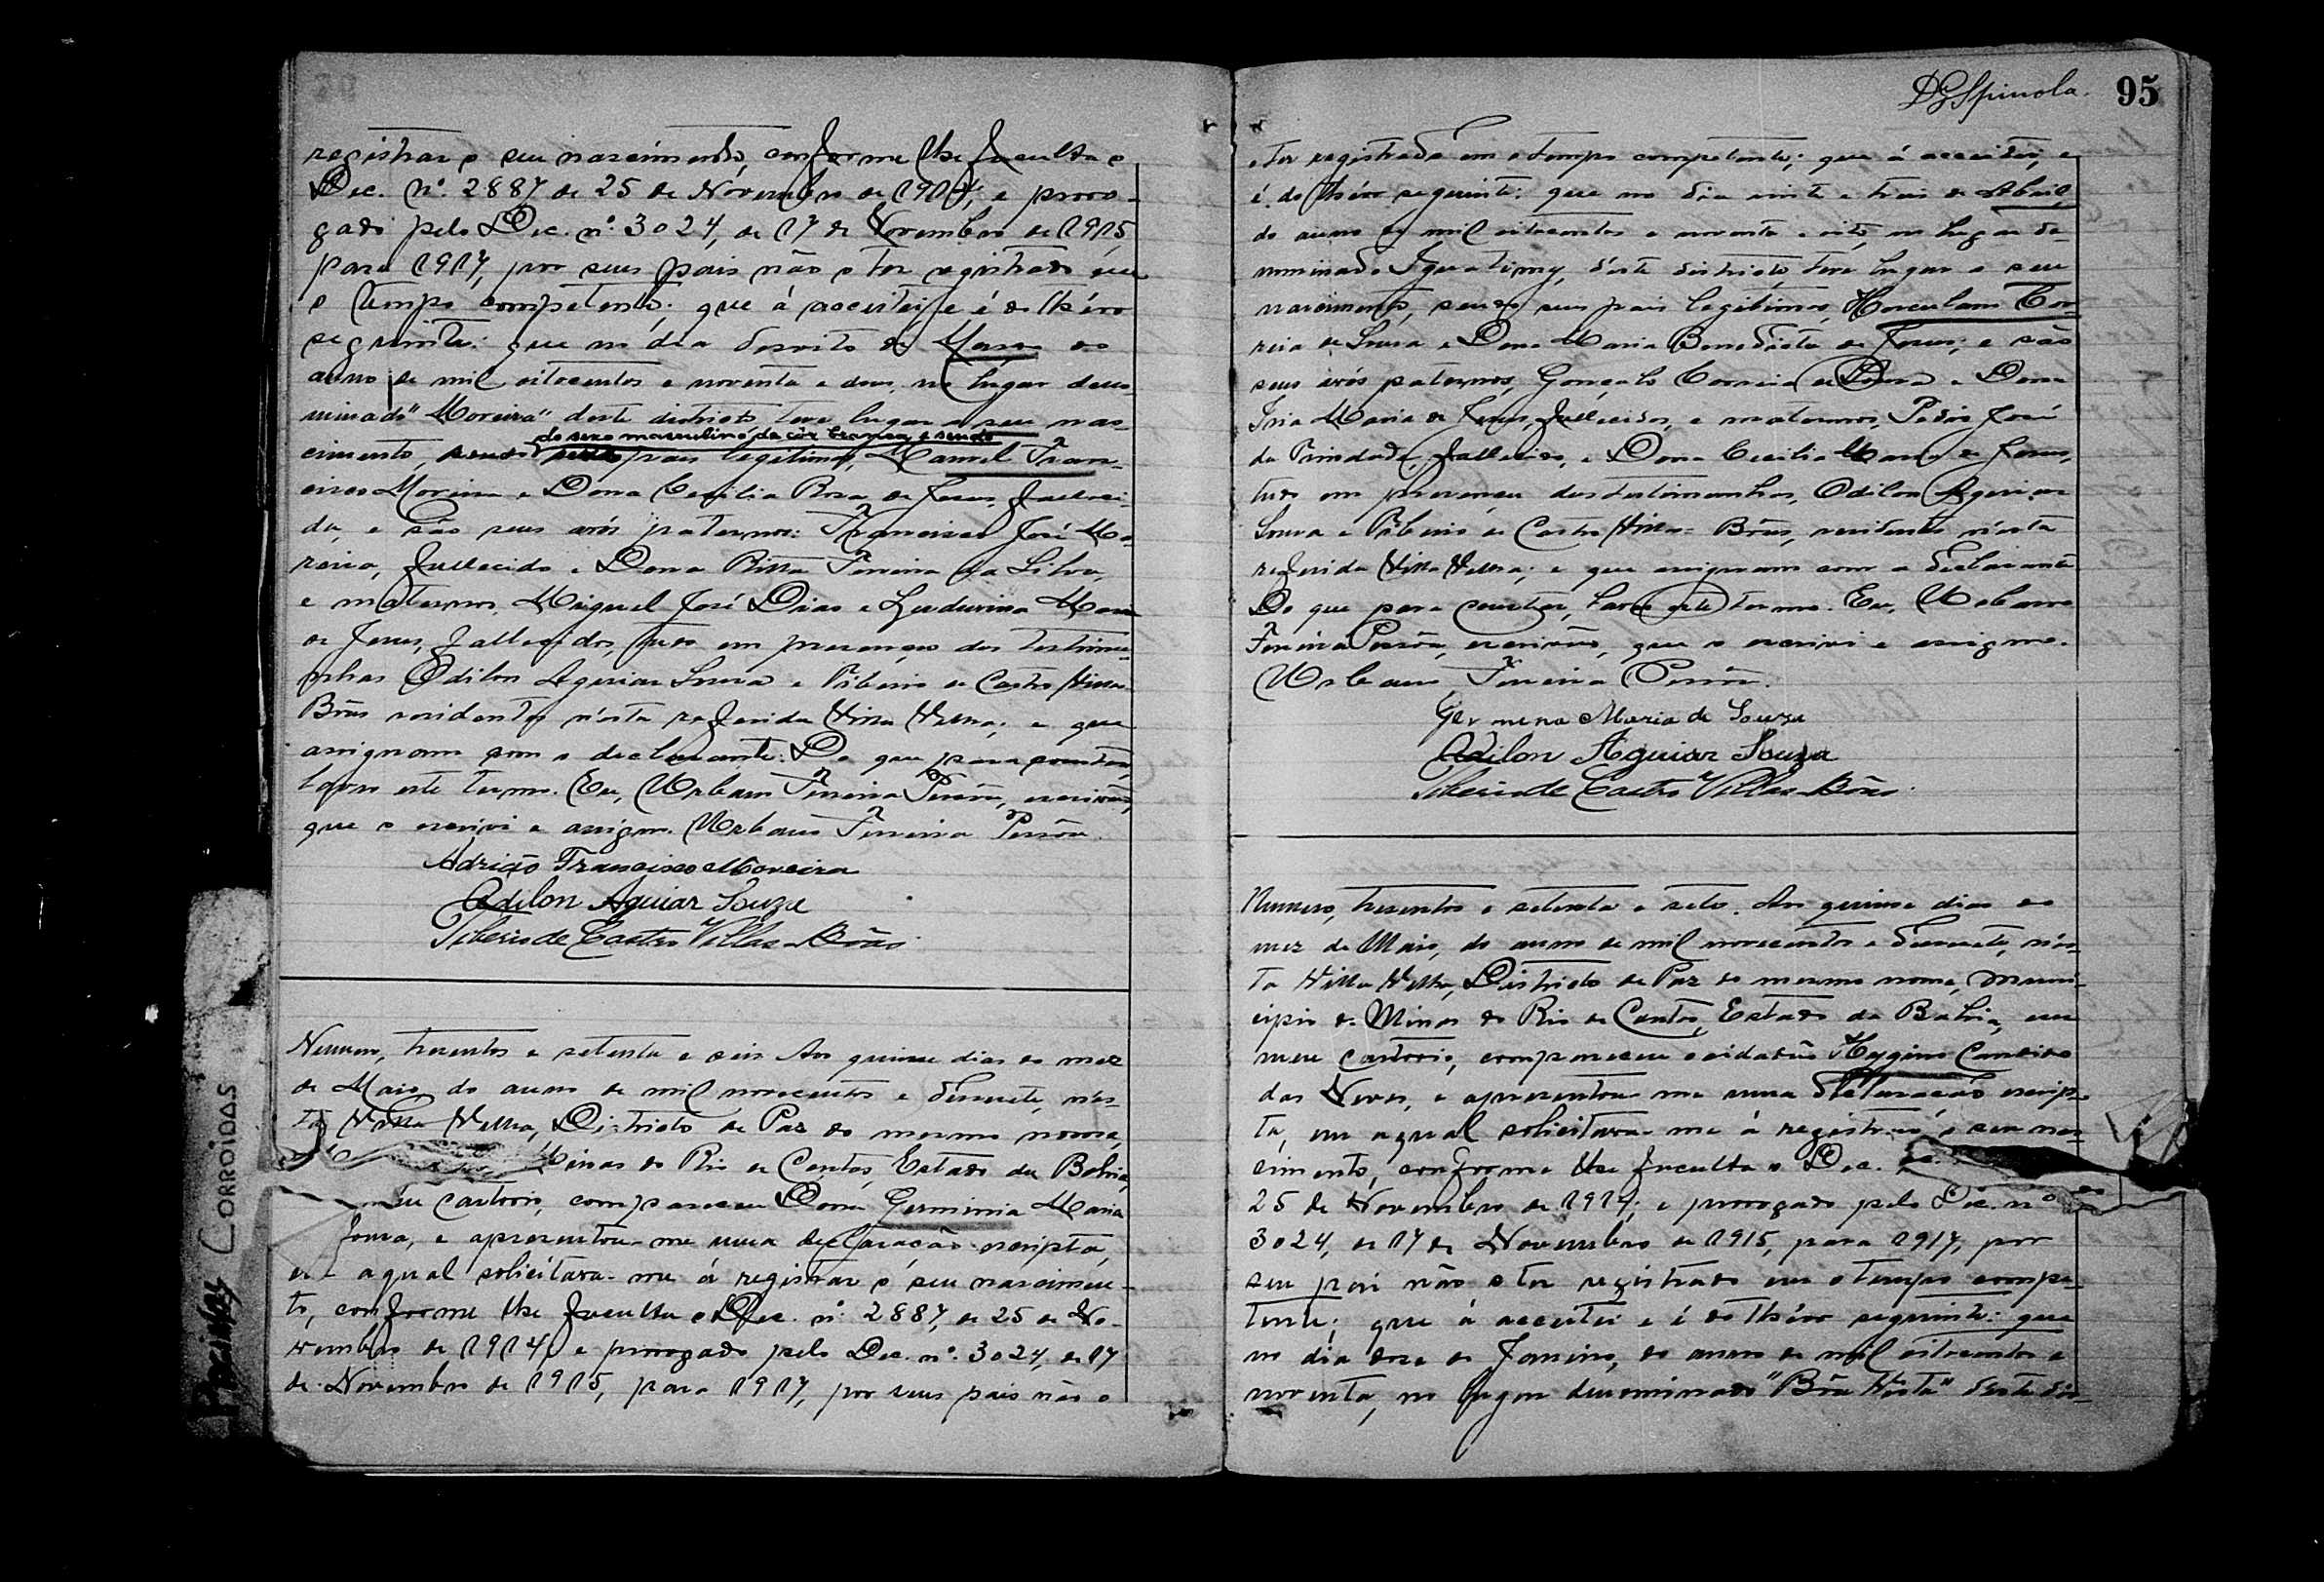 registrar o seu nascimento, conforme lhe faculta o
Dec. nº. 2887 de 25 de Novembro de 1914, e proro-
gado pelo Dec. nº. 3024, de 17 de Novembro de 1915
para 1917, por seus pais não o ter registrado em
o tempo competente; que á acceitei, e é do théor
seguinte: que no dia desoito de Março do
anno de mil oitocentos e noventa e dous, no lugar deno-
minado "Moreira" deste districto, teve lugar o seu nas-
do sexo masculino, da côr branca, e sendo
cimento, pais legitimos, Manoel Fran-
cisco Moreira e Dona Cecilia Rosa de Jesus, falleci-
da, e são seus avós paternos: Francisco José Mo-
reira, fallecido e Dona Ritta Ferreira da Silva,
e maternos, Miguel José Dias e Maria
de Jesus, fallecidos, tudo em presença das testimu-
nhas Odilon Aguiar Souza e Tiberio de Castro Villas-
Bôas residentes n'esta referida Villa Velha; e que
assignam com o declarante. Do que para constar,
lavro este termo. Eu, Urbano Ferreira Pessôa, escrivão,
que o escrivi e assigno. Urbano Ferreira Pessôa.
Adrião Francisco Moreira
Odilon Aguiar Souza
Tiberio de Castro Villas-Bôas.
Numero, trezentos e setenta e seis. Aos quinze dias do mez
de Maio, do anno de mil novecentos e desesete, n'es-
ta Villa Velha, Districto de Paz do mesmo nome,
Minas do Rio de Contas, Estado da Bahia,
meu cartorio, compareceu Dona Germinia Maria
Souza, e apresentou-me uma declaração escripta,
em a qual solicitava-me á registrar o seu nascimen-
to, conforme lhe faculta o Dec. nº. 2887, de 25 de No-
vembro de 1914, e prorogado pelo Dec. nº. 3024, de 17
de Novembro de 1915, para 1917, por seus pais não o
DGSpinola. 95
ter registrado em o tempo competente; que á acceitei, e
é do théor seguinte: que no dia vinte e tres de Abril,
do anno de mil oitocentos e noventa e oito, no lugar de-
nominado Iguatimy, d'este districto, teve lugar o seu
nascimento, sendo seus pais legitimos, Herculano Cor-
reia de Souza e Dona Maria Benedicta de Jesus; e são
seus avós paternos, Gonçalo Correia de Souza e Dona
Iria Maria de Jesus, fallecidos, e maternos, Pedro José
da Trindade, fallecido, e Dona Cecilia Maria de Jesus,
tudo em presença das testimunhas, Odilon Aguiar
Souza e Tiberio de Castro Villas-Bôas, residentes n'esta
referida Villa Velha; e que assignam com a declarante
Do que para constar, lavro este termo. Eu, Urbano
Ferreira Pessôa, escrivão, que o escrivi e assigno.
Urbano Ferreira Pessôa.
Germena Maria de Souza
Odilon Aguiar Souza
Tiberio de Castro Villas-Bôas.
Numero, trezentos e setenta e sete. Aos quinze dias do
mez de Maio, do anno de mil novecentos e desesete, n'es-
ta Villa Velha, Districto de Paz do mesmo nome, Muni-
cipio de Minas do Rio de Contas, Estado da Bahia, em
meu cartorio, compareceu o cidadão Hygino Candido
das Neves, e apresentou-me uma declaração escrip-
ta, em a qual solicitava-me á registrar o seu nas-
cimento, conforme lhe faculta o Dec.
25 de Novembro de 1914; e prorogado pelo Dec. nº
3024, de 17 de Novembro de 1915, para 1917, por
seu pai não o ter registrado em o tempo compe-
tente; que á acceitei e é do théor seguinte: que
no dia doze de Janeiro, do anno de mil oitocentos e
noventa, no lugar denominado "Bôa Vista" deste dis-
Paginas CORROIDAS